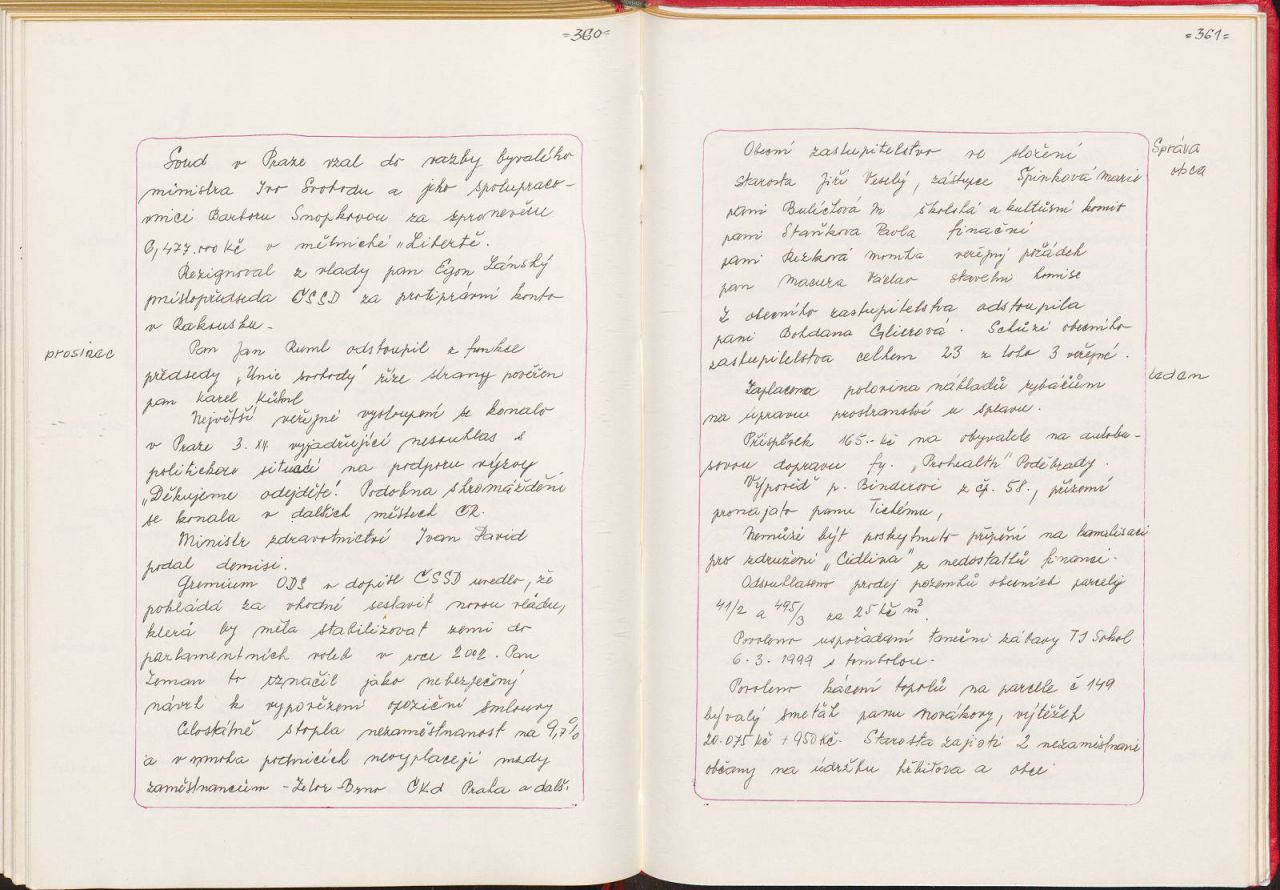 =360=
Soud v Praze vzal do vazby bývalého
ministra Ivo Svobodu a jeho spolupraco-
vnici Barboru Snopkovou za zpronevěru
0,477.000 Kč v mětnické „Libertě.
Rezignoval z vlády pan Egon Lánský
místopředseda ČSSD za protiprávní konto
v Rakousku-
prosinec
Pan Jan Ruml odstoupil z funkce
předsedy „Unie svobody" říze strany pověřen
pan Karel Kühnl
Největší veřejné vystoupení se konalo
v Praze 3. XII. vyjadřující nesouhlas s
politickou situací na podporu výzvy
„Děkujeme odejděte! Podobna shromáždění
se konala v dalších městech ČR.
Ministr zdravotnictví Ivan David
podal demisi.
Gremium ODS v dopise ČSSD uvedlo, že
pokládá za vhodné sestavit novou vládu,
která by měla stabilizovat zemi do
parlamentních voleb v roce 2002. Pan
Zeman to označil jako nebezpečný
návrh k vypovězení opoziční smlouvy
Celostátně stopla nezaměstnanost na 9,7%
a v mnoha podnicích nevyplacejí mzdy
zaměstnancům - Zetor - Brno ČKd Praha a dalš.
=361=
Správa
obce
Obecní zastupitelstvo ve složení
starosta Jiří Veselý, zástupce Špinková Marie
paní školská a kultůsní komis
paní Staňkova Pavla finační
paní Rezková Monika veřejný pořádek
pan Macura Václav stavební komise
Z obecního zastupitelstva odstoupila
paní Bohdana Glierová. Schůzí obecního
zastupitelstva celkem 23 z toho 3 veřejné.
leden
Zaplacena polovina nákladů rybářům
na úpravu prostranství u splavu.
Příspěvek 165.- Kč na obyvatele na autobu-
sovou dopravu fy. „Prohealth" Poděbrady.
Výpověď p. Binderovi z čp. 58., přízemí
pronajato panu Tichému,
Nemůže být poskytnuto připění na kanalisaci
pro združení „Cidlina" z nedostatků financí.
Odsouhlaseno prodej pozemků obecních parcely
41/2 a 495/3 za 25 Kč m².
Povoleno uspořádaní taneční zábavy TJ Sokol
6. 3. 1999 s tombolou.
Povoleno kácení topolů na parcele č 149
bývalý smeťák panu Novákovy, výtěžek
20.075 Kč + 950 Kč. Starosta zajistí 2 nezaměstnané
občany na údržbu hřbitova a obce